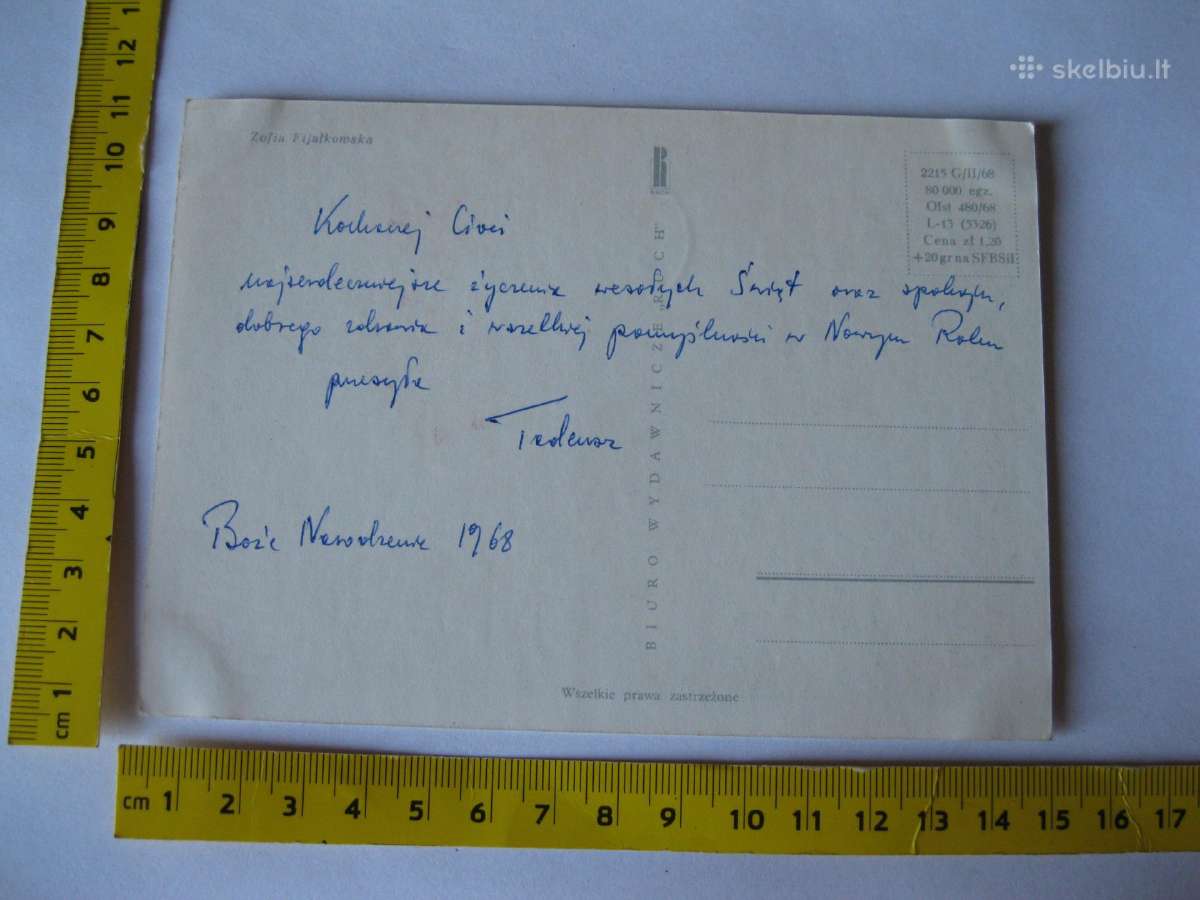 skelbiu.lt
Zofia Fijałkowska
R
2215 G/II/68
80 000 egz.
Ofst 480/68
L-13 (5326)
Cena zł 1,20
+20 gr na SFBSiI
Kochanej Cioci
najserdeczniejsze życzenia wesołych Świąt oraz spokoju,
dobrego zdrowia i wszelkiej pomyślności w Nowym Roku
przesyła
Tadeusz
Boże Narodzenie 1968
BIURO WYDAWNICZE „RUCH"
Wszelkie prawa zastrzeżone
cm 1 2 3 4 5 6 7 8 9 10 11 12
cm 1 2 3 4 5 6 7 8 9 10 11 12 13 14 15 16 17